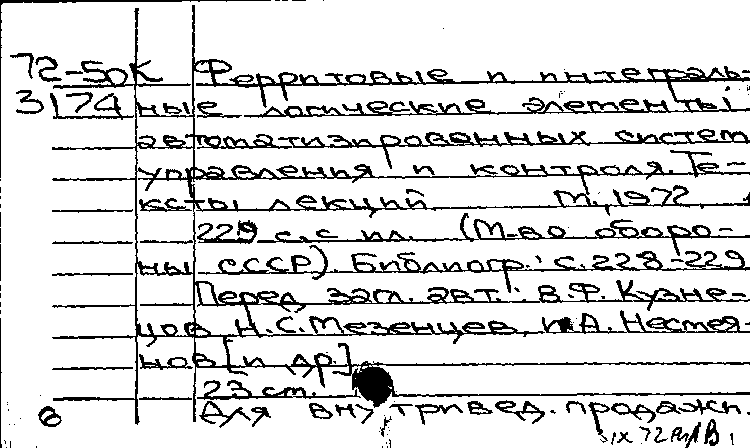 72-50К Ферритовые и интеграль-
3174 ные логические элементы
автоматизированных систем
управления и контроля. Те-
ксты лекций. М., 1972.
229 с. с ил. (М-во оборо-
ны СССР). Библиогр.: с. 228-229
Перед загл. авт.: В.Ф. Кузне-
цов, Н.С. Мезенцев, И.А. Нестея-
нов [и др.]
23 см.
8 Для внутривед. продажи.
IX 72